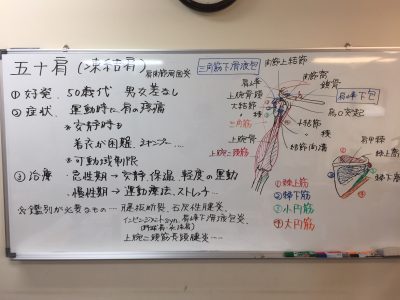 五十肩(凍結肩)
肩関節周囲炎
①好発、50歳代 男女差なし
②症状、運動時に肩の疼痛
※安静時も
着衣が困難、
※可動域制限
③治療、急性期→安静、保温、軽度の運動
慢性期→運動療法、ストレッチ…
※鑑別が必要なもの…腱板断裂、石灰性腱炎
インピンジメントsyn、肩峰下滑液包炎
(野球肩・水泳肩)
上腕二頭筋長頭腱炎…
三角筋下滑液包
肩峰
上腕骨頭
大結節
三角筋
上腕骨
上腕二頭筋
関節上結節
関節窩
鎖骨
肩峰下包
烏口突起
小結節
結節間溝
肩甲棘
棘上窩
棘下窩
①棘上筋
②棘下筋
③小円筋
④大円筋